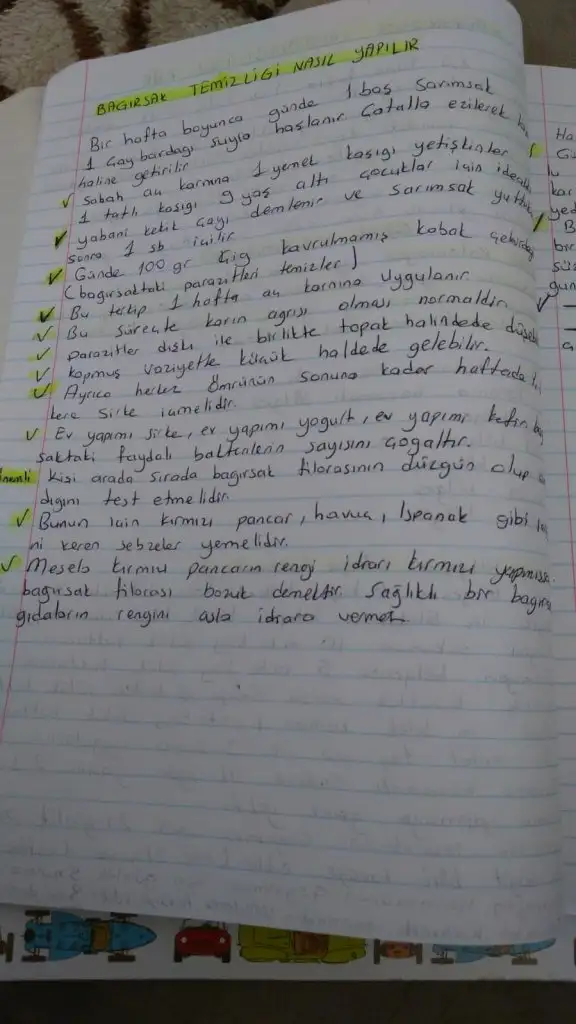 BAGIRSAK TEMIZLIGI NASIL YAPILIR
Bir hafta boyunca günde 1 baş sarımsak
1 çay bardağı suyla haşlanır Çatalla ezilerek
haline getirilir
Sabah aç karnına 1 yemek kaşığı yetişkinler
1 tatlı kaşığı 9 yaş altı çocuklar için
yabani kekik çayı demlenir ve sarımsak
sonra 1 sb içilir
Günde 100 gr Çiğ kavrulmamış kabak
(bağırsaktaki parazitleri temizler)
Bu tertip 1 hafta aç karnına Uygulanır
Bu süreçte karın ağrısı olması normaldir
parazitler dışkı ile birlikte topak halindede
kopmuş vaziyette küçük haldede gelebilir.
Ayrıca herkez Ömrünün sonuna kadar haftada
kere sirke içmelidir.
Ev yapımı sirke, ev yapımı yogurt, ev yapımı kefir
saktaki faydalı bakterilerin sayısını çoğaltır.
Önemli Kişi arada sırada bağırsak filorasının düzgün olup
dığını test etmelidir
Bunun için kırmızı pancar, havuç, Ispanak gibi
ni veren sebzeler yemelidir.
Mesela kırmızı pancarın rengi idrarı kırmızı
bağırsak filorası bozuk demektir Sağlıklı bir
gıdaların rengini asla idrara vermez